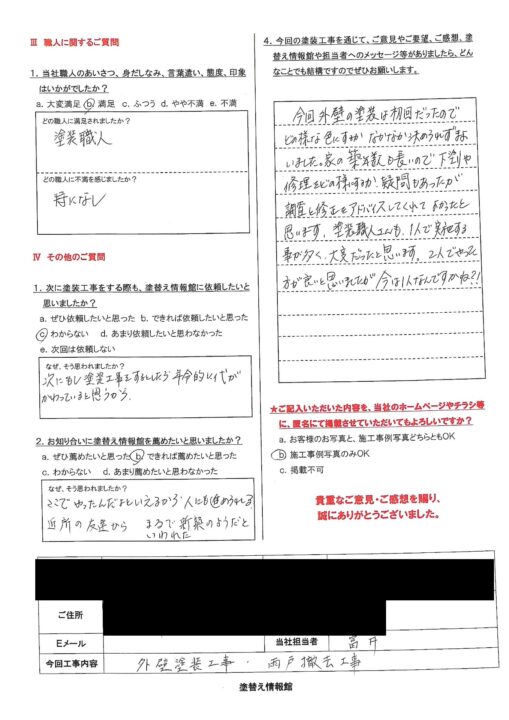 Ⅲ 職人に関するご質問
1. 当社職人のあいさつ、身だしなみ、言葉遣い、態度、印象
はいかがでしたか？
a. 大変満足 b 満足 c. ふつう d. やや不満 e. 不満
どの職人に満足されましたか？
塗装職人
どの職人に不満を感じましたか？
特になし
Ⅳ その他のご質問
1. 次に塗装工事をする際も、塗替え情報館に依頼したいと
思いましたか？
a. ぜひ依頼したいと思った b. できれば依頼したいと思った
c わからない d. あまり依頼したいと思わなかった
e. 次回は依頼しない
なぜ、そう思われましたか？
次にもし塗装工事をするとしたら年令的に代が
かわっていると思うから
2. お知り合いに塗替え情報館を薦めたいと思いましたか？
a. ぜひ薦めたいと思った b できれば薦めたいと思った
c. わからない d. あまり薦めたいと思わなかった
なぜ、そう思われましたか？
ここでやったんだよといえるから 人にも進められる
近所の友達から まるで新築のようだと
いわれた
4. 今回の塗装工事を通じて、ご意見やご要望、ご感想、塗
替え情報館や担当者へのメッセージ等がありましたら、どん
なことでも結構ですのでぜひお願いします。
今回外壁の塗装は初回だったので
どの様な色にするか なかなか決められずまよ
いました。家の築年数も長いので 下塗りや
修理をどの様にするか、疑問もあったが
調査と修正をアドバイスしてくれて よかったと
思います。塗装職人さんも、1人で実施する
事が多く、大変だったと思います。2人でやった
方が良いと思いましたが 今は1人なんですかね?!
★ご記入いただいた内容を、当社のホームページやチラシ等
に、匿名にて掲載させていただいてもよろしいですか？
a. お客様のお写真と、施工事例写真どちらともOK
b 施工事例写真のみOK
c. 掲載不可
貴重なご意見・ご感想を賜り、
誠にありがとうございました。
ご住所
Eメール 当社担当者 富井
今回工事内容 外壁塗装工事・雨戸撤去工事
塗替え情報館